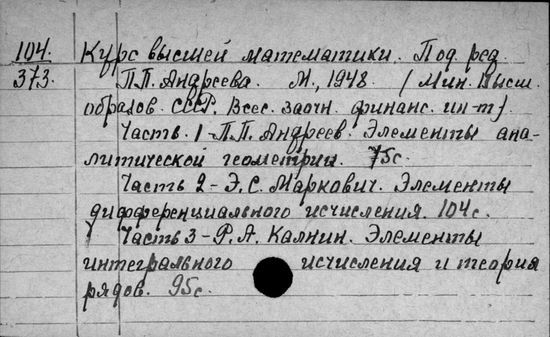 104. Курс высшей математики. Под ред.
373. П.П. Андреева. М., 1948. (Мин. высш.
образов. СССР. Всес. заочн. финанс. ин-т)
Часть 1 - П.П. Андреев. Элементы ана-
литической геометрии. 75с.
Часть 2 - Э.С. Маркович. Элементы
дифференциального исчисления. 104с.
Часть 3 - Р.А. Калнин. Элементы
интегрального исчисления и теория
рядов. 95с.